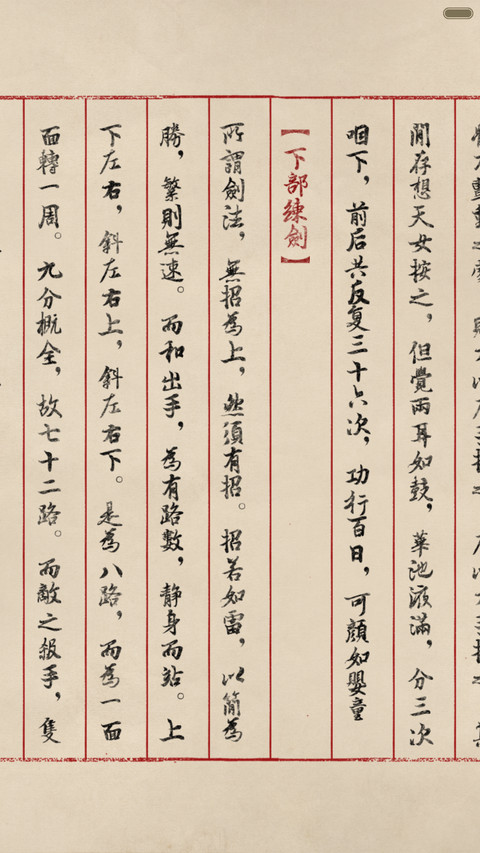 閒存想天女按之，但覺兩耳如鼓，華池液滿，分三次
咽下，前后共反复三十六次，功行百日，可顔如嬰童
【下部練劍】
所謂劍法，無招為上，然須有招。招若如雷，以簡為
勝，繁則無速。而和出手，為有路數，靜身而站。上
下左右，斜左右上，斜左右下。是為八路，而為一面
面轉一周。九分概全，故七十二路。而敵之殺手，隻